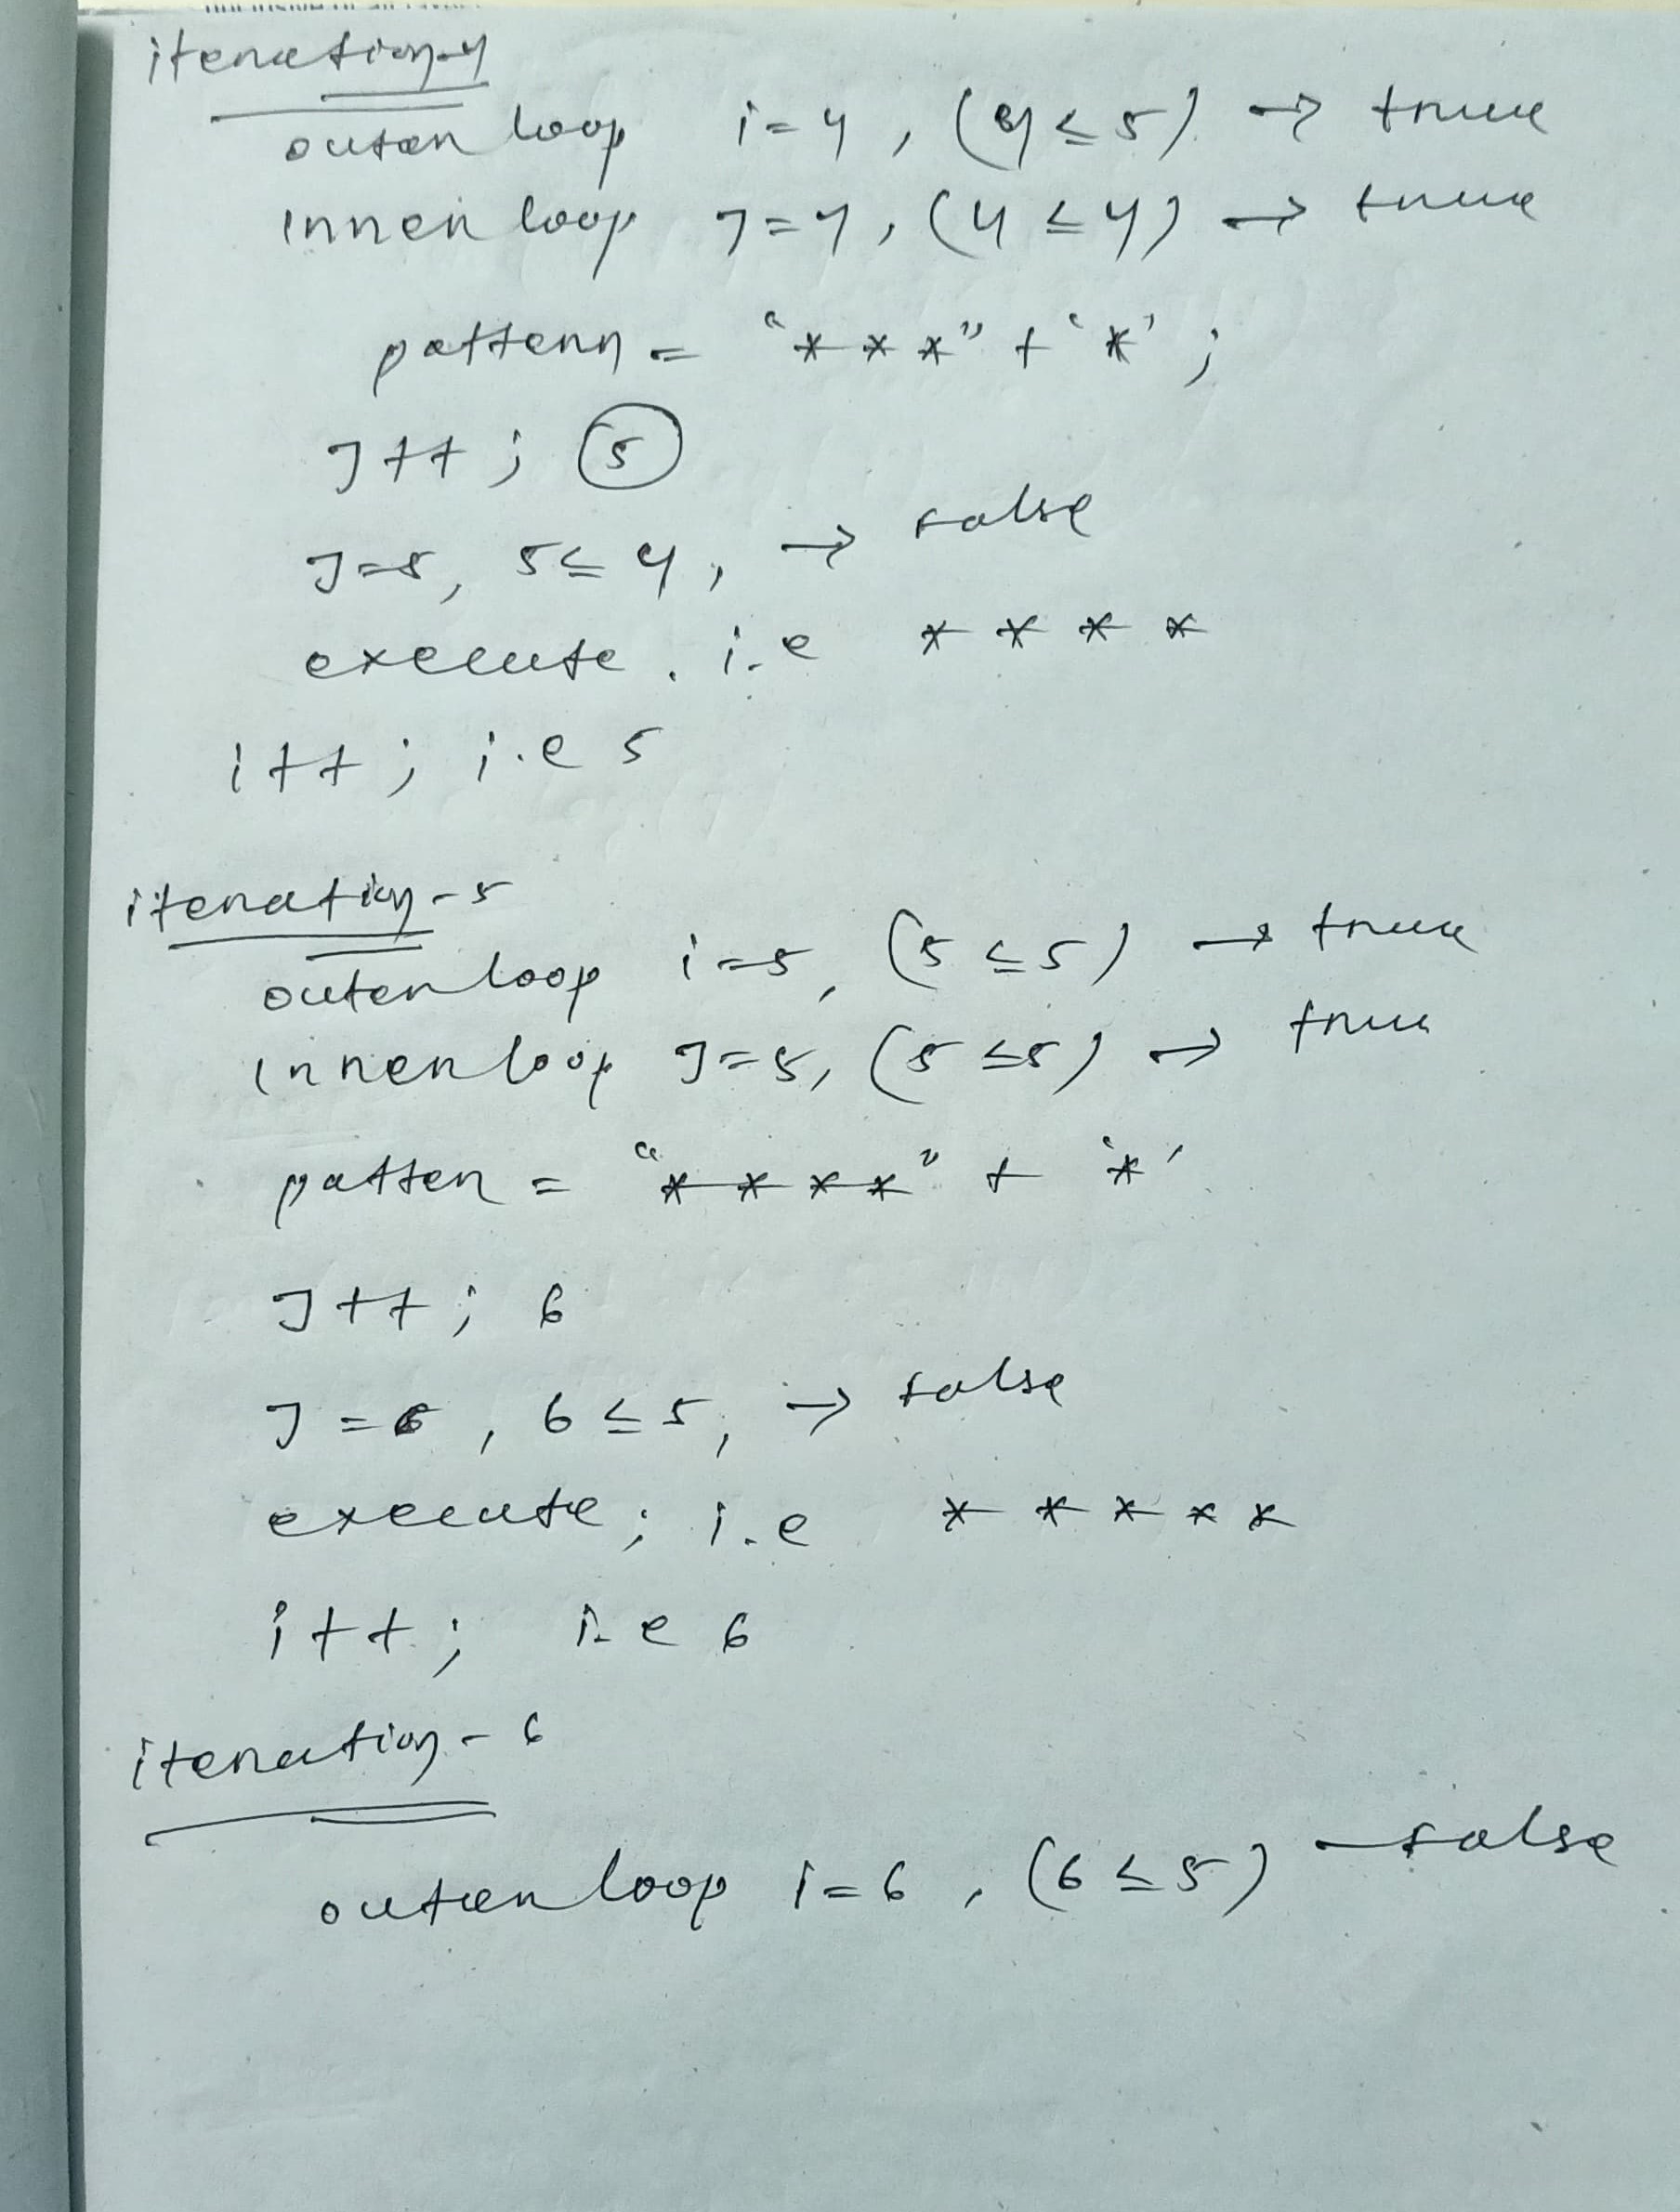 iteration-4
outer loop i=4, (4≤5) → true
inner loop J=4, (4≤4) → true
pattern = "* * *" + '*' ;
J++ ; 5
J=5, 5≤4, → false
execute. i.e * * * *
i++ ; i.e 5
iteration-5
outer loop i=5, (5≤5) → true
inner loop J=5, (5≤5) → true
patter = "* * * *" + '*'
J++ ; 6
J=6, 6≤5, → false
execute; i.e * * * * *
i++; i.e 6
iteration-6
outer loop i=6, (6≤5) – false